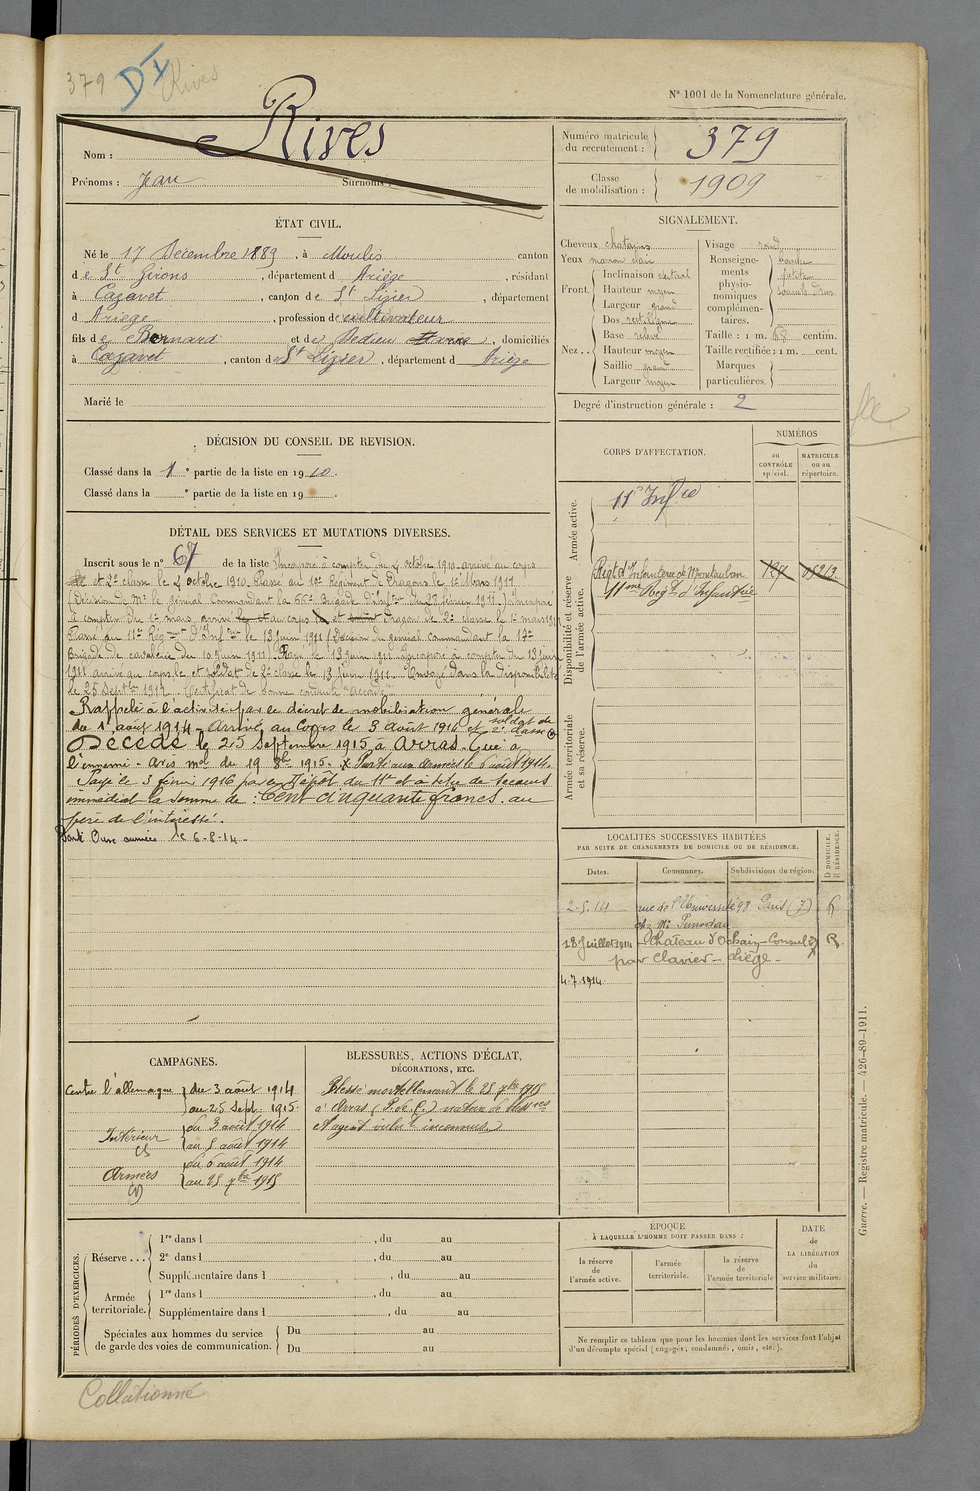 379 DI Rives
N° 1001 de la Nomenclature générale.
Nom : Rives
Prénoms : Jean Surnoms :
Numéro matricule du recrutement : 379
Classe de mobilisation : 1909
ÉTAT CIVIL.
Né le 17 Décembre 1889, à Moulis canton
de St Girons, département d Ariège, résidant
à Cazavet, canton de St Lizier, département
d Ariège, profession de cultivateur
fils de Bernard et de Dedieu, domiciliés
à Cazavet, canton de St Lizier, département d Ariège
Marié le
SIGNALEMENT.
Cheveux chatains Visage rond
Yeux marron clair Renseignements physionomiques complémentaires. bouche petite
Front. Inclinaison vertical
Hauteur moyen
Largeur grand
Nez.. Dos rectiligne
Base relevé Taille : 1 m. 68 centim.
Hauteur moyen Taille rectifiée : 1 m. cent.
Saillie grand Marques
Largeur moyen particulières.
Degré d'instruction générale : 2
DÉCISION DU CONSEIL DE REVISION.
Classé dans la 1e partie de la liste en 1910.
Classé dans la e partie de la liste en 19 .
CORPS D'AFFECTATION.
NUMÉROS
au CONTRÔLE spécial.
MATRICULE ou au répertoire.
Armée active.
11e Infie
Disponibilité et réserve de l'armée active.
Régt d'Infanterie de Montauban
11eme Régt d'Infanterie
Armée territoriale et sa réserve.
DÉTAIL DES SERVICES ET MUTATIONS DIVERSES.
Inscrit sous le n° 67 de la liste Incorporé à compter du 4 octobre 1910. arrivé au corps
et 2e classe le 4 octobre 1910. Passé au 10e Régiment de Dragons le 1er Mars 1911
(Décision de Mr le général Commandant la 66e Brigade d'Inftrie du 27 février 1911). Incorporé
à compter du 1er mars, arrivé au corps et Dragon de 2e classe le 1er mars 1911
Passé au 11e Régment d'Inftrie le 13 juin 1911 (Décision du général commandant la 17e
Brigade de cavalerie du 10 juin 1911). Passé le 13 juin 1911. Incorporé à compter du 13 juin
1911 arrivé au corps le et soldat de 2e classe le 13 juin 1911. Envoyé dans la disponibilité
le 25 Septbre 1912. Certificat de bonne conduite "Accordé"
Rappelé à l'activité par le décret de mobilisation générale
du 1er août 1914 - Arrivé au Corps le 3 août 1914 et soldat de 2e classe
Décédé le 25 septembre 1915 à Arras. Tué à
l'ennemi - avis mel du 19 8bre 1915. x Parti aux armées le 6 août 1914.
Payé le 3 février 1916 par le Dépôt du 11e et à titre de secours
immédiat la somme de : Cent cinquante francs. au
père de l'intéressé.
Parti aux armées le 6-8-14-
LOCALITÉS SUCCESSIVES HABITÉES
PAR SUITE DE CHANGEMENTS DE DOMICILE OU DE RÉSIDENCE.
Dates. Communes. Subdivisions de région. D DOMICILE. R RÉSIDENCE.
2-5-14 rue de l'Université 98 Paris (7) R
chez Mr
18 Juillet 1914 Chateau d'Ochain- R.
par Clavier - Liège -
4.7.1914
CAMPAGNES.
Contre l'allemagne du 3 août 1914
au 25 Sept. 1915.
Intérieur du 3 août 1914
au 5 août 1914
Armées du 6 août 1914
au 25 7bre 1915
BLESSURES, ACTIONS D'ÉCLAT,
DÉCORATIONS, ETC.
Blessé mortellement le 25 7bre 1915
à Arras (P. de C.) nature de blessures
et agent vulnt inconnus
PÉRIODES D'EXERCICES.
Réserve... 1re dans l , du au
2e dans l , du au
Supplémentaire dans l , du au
Armée territoriale. 1re dans l , du au
Supplémentaire dans l , du au
Spéciales aux hommes du service de garde des voies de communication. Du au
Du au
ÉPOQUE
À LAQUELLE L'HOMME DOIT PASSER DANS :
la réserve de l'armée active.
l'armée territoriale.
la réserve de l'armée territoriale
DATE de LA LIBÉRATION du service militaire.
Ne remplir ce tableau que pour les hommes dont les services font l'objet
d'un décompte spécial (engagés, condamnés, omis, etc.).
Guerre. — Registre matricule. — 426-89-1911.
Collationné